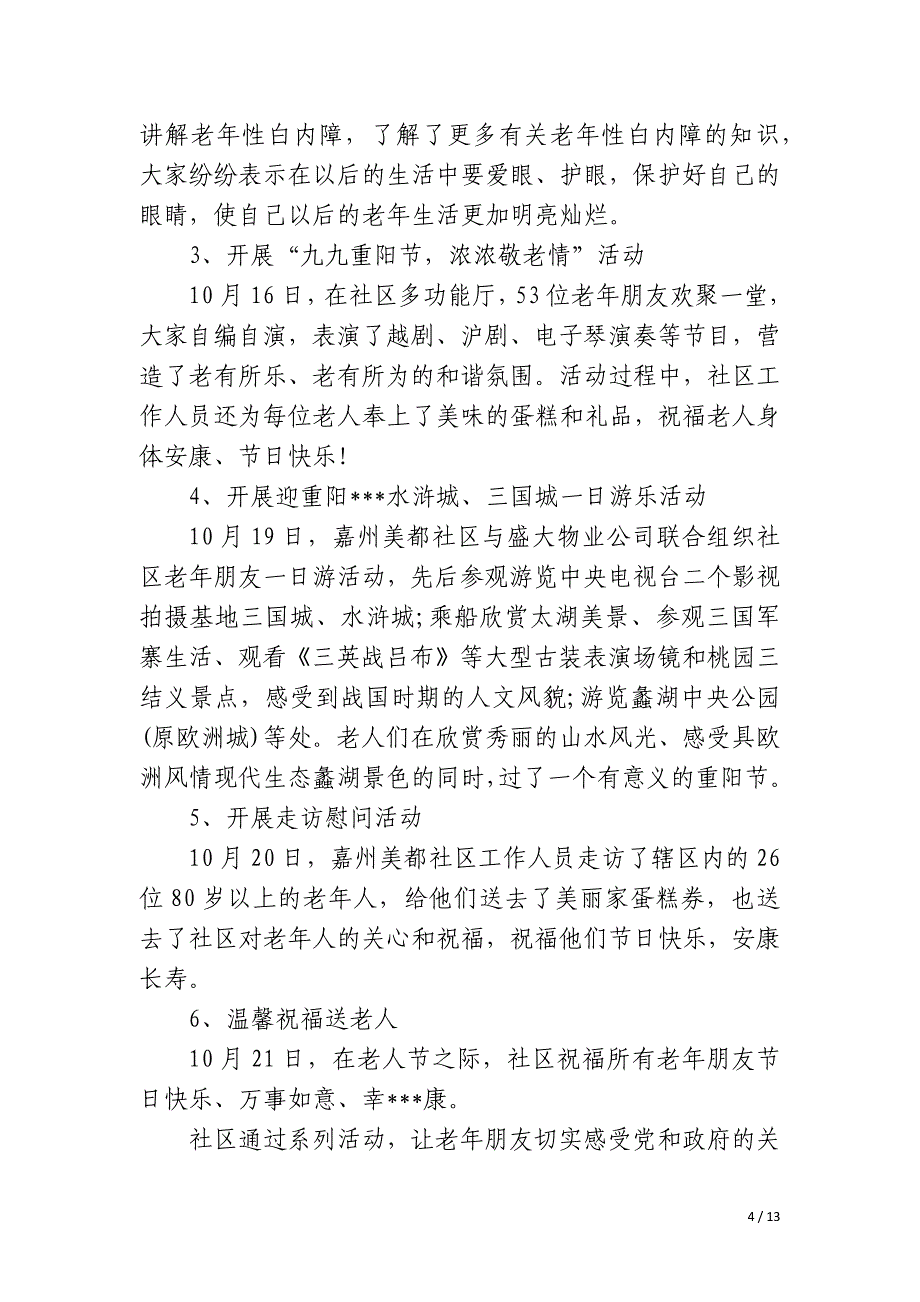 讲解老年性白内障，了解了更多有关老年性白内障的知识，
大家纷纷表示在以后的生活中要爱眼、护眼，保护好自己的
眼睛，使自己以后的老年生活更加明亮灿烂。
3、开展“九九重阳节，浓浓敬老情”活动
10 月 16 日，在社区多功能厅，53 位老年朋友欢聚一堂，
大家自编自演，表演了越剧、沪剧、电子琴演奏等节目，营
造了老有所乐、老有所为的和谐氛围。活动过程中，社区工
作人员还为每位老人奉上了美味的蛋糕和礼品，祝福老人身
体安康、节日快乐!
4、开展迎重阳***水浒城、三国城一日游乐活动
10 月 19 日，嘉州美都社区与盛大物业公司联合组织社
区老年朋友一日游活动，先后参观游览中央电视台二个影视
拍摄基地三国城、水浒城;乘船欣赏太湖美景、参观三国军
寨生活、观看《三英战吕布》等大型古装表演场镜和桃园三
结义景点，感受到战国时期的人文风貌;游览蠡湖中央公园
(原欧洲城)等处。老人们在欣赏秀丽的山水风光、感受具欧
洲风情现代生态蠡湖景色的同时，过了一个有意义的重阳节。
5、开展走访慰问活动
10 月 20 日，嘉州美都社区工作人员走访了辖区内的 26
位 80 岁以上的老年人，给他们送去了美丽家蛋糕券，也送
去了社区对老年人的关心和祝福，祝福他们节日快乐，安康
长寿。
6、温馨祝福送老人
10 月 21 日，在老人节之际，社区祝福所有老年朋友节
日快乐、万事如意、幸***康。
社区通过系列活动，让老年朋友切实感受党和政府的关
4 / 13